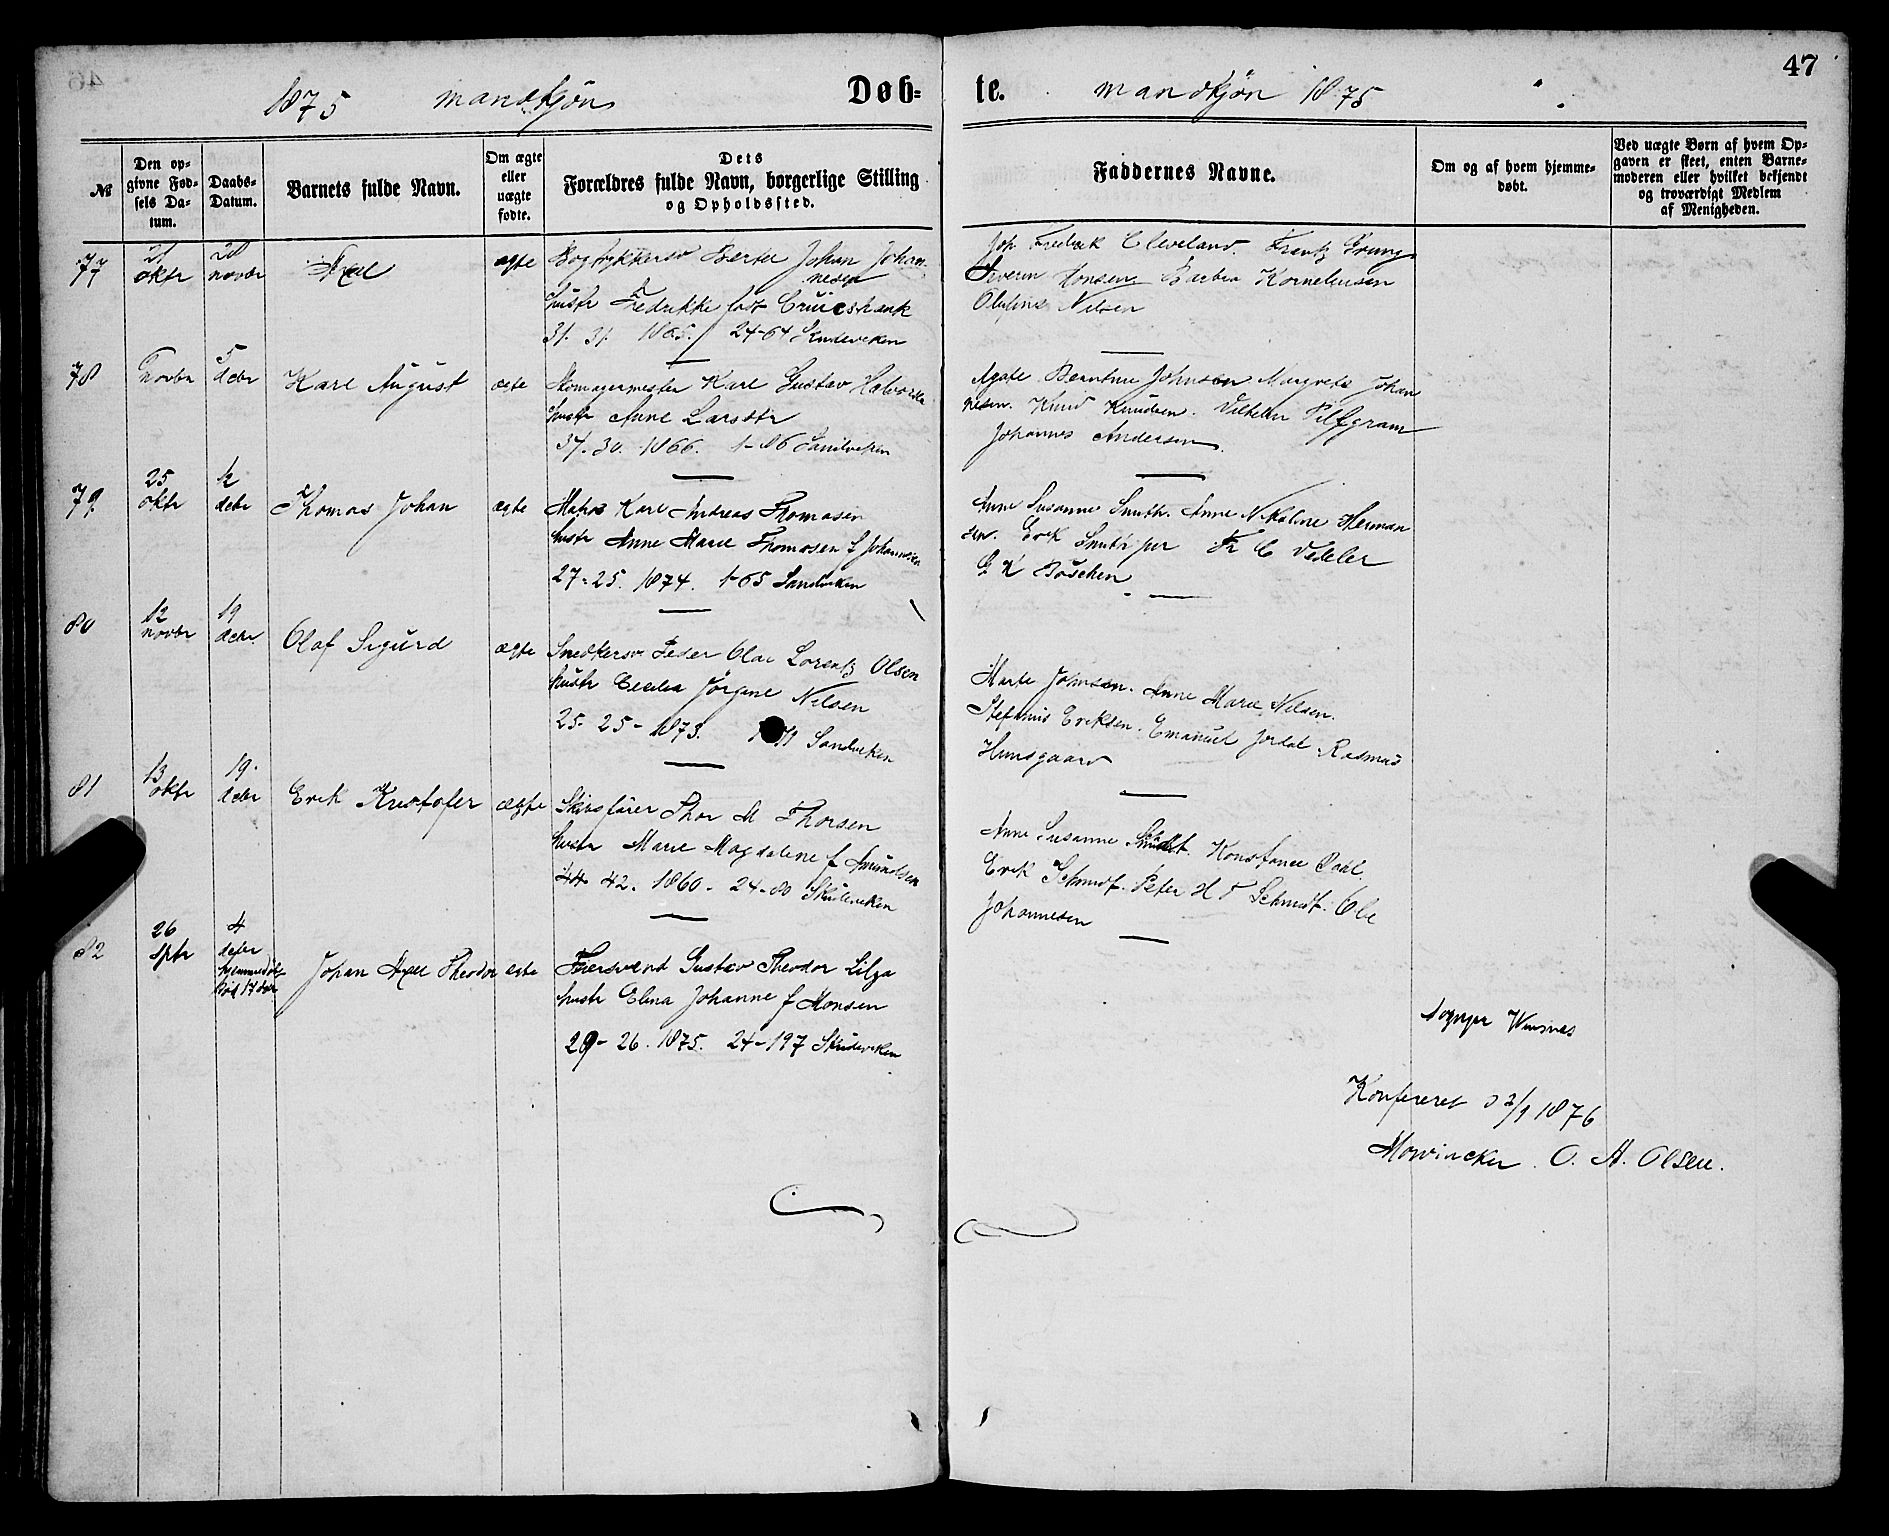 47
1875 mandkjøn Døb= te. mandkjøn 1875
№
Den opgivne Fødsels Datum.
Daabs-Datum.
Barnets fulde Navn.
Om ægte eller uægte fødte.
Dets
Forældres fulde Navn, borgerlige Stilling
og Opholdssted.
Faddernes Navne.
Om og af hvem hjemmedøbt.
Ved uægte Børn af hvem Op-
gaven er skeet, enten Barne-
moderen eller hvilket bekjendt
og troværdigt Medlem
af Menigheden.
77 21 oktr 28 novbr Axel ægte
Bogtrykkersv Bertel Johan Johan
nesen
hustr Fredrikke født Cruicshank
31. 31. 1865. 24-64 Skudeviken
Joh Fredrik Cleveland. Frantz Grung
Severin Hansen Barbra Korneliussen
Olufine Nilsen
78 novbr 5 debr Karl August ægte
Skomagermester Karl Gustav Halvorsen
hustr Anne Larsdtr
37. 30. 1866. 1-86 Sandviken
Agate Johnsen Margrete Johan
nesen. Knud Knudsen. Vilhelm Pilfgram
Johannes Andersen
79. 25 oktr 12 debr Thomas Johan ægte
Matros Karl Andreas Thomasen
hustr Anne Marie Thomasen f Johannesen
27-25. 1874. 1-65 Sandviken
Anne Susanne Smith. Anne Nikoline Herman
sen. Erik Smith jun Fr C Vedeler
G K Böschen
80 12 novbr 19 debr Olaf Sigurd ægte
Snedkersv Peder Olai Lorentz Olsen
hustr Cecilia Jørgine Nilsen
25-25-1873. Sandviken
Marte Johnsen. Anne Marie Nilsen.
Stefanus Eriksen. Emanuel Jordal Rasmus
Hunsgaard
81 13 oktr 19. debr Erik Kristofer ægte
Skibsfører Thor M Thorsen
hustr Marie Magdalene f Amundsen
44 42. 1860-24-80 Skudeviken
Anne Susanne Smidt. Konstance Dahl.
Erik Schmidt. Peter H F Schmidt. Ole
Johannesen
82 26 sptr 4 debr hjemmedøbt død 17 debr Johan Axel Theodor ægte
Gustav Theodor Lilja
hustr Elena Johanne f Monsen
29-26. 1875. 24-197 Skudeviken
Sognepr Winsnes
Konfereret d 3/1 1876
Mowinckel. O. A. Olsen.